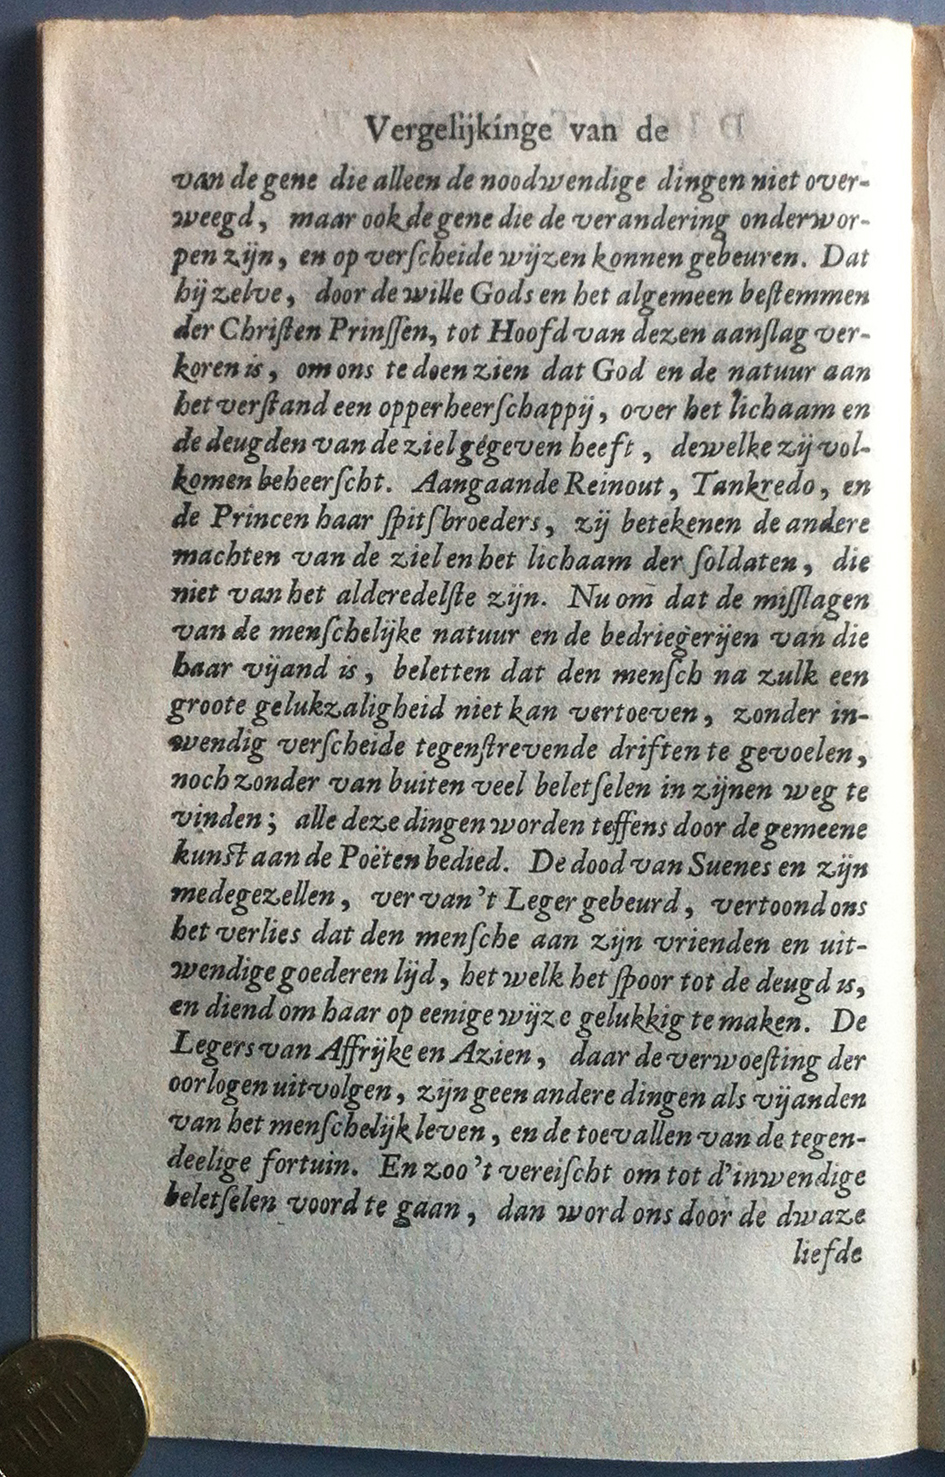 Vergelijkinge van de
van de gene die alleen de noodwendige dingen niet over-
weegd, maar ook de gene die de verandering onderwor-
pen zijn, en op verſcheide wijzen konnen gebeuren. Dat
hij zelve, door de wille Gods en het algemeen beſtemmen
der Chriſten Prinſſen, tot Hoofd van dezen aanſlag ver-
koren is, om ons te doen zien dat God en de natuur aan
het verſtand een opperheerſchappij, over het lichaam en
de deugden van de ziel gegeven heeft, dewelke zij vol-
komen beheerſcht. Aangaande Reinout, Tankredo, en
de Princen haar ſpitſbroeders, zij betekenen de andere
machten van de ziel en het lichaam der ſoldaten, die
niet van het alderedelſte zijn. Nu om̃ dat de miſſlagen
van de menſchelijke natuur en de bedriegerijen van die
haar vijand is, beletten dat den menſch na zulk een
groote gelukzaligheid niet kan vertoeven, zonder in-
wendig verſcheide tegenſtrevende driften te gevoelen,
noch zonder van buiten veel beletſelen in zijnen weg te
vinden; alle deze dingen worden teffens door de gemeene
kunſt aan de Poëten bedied. De dood van Suenes en zijn
medegezellen, ver van 't Leger gebeurd, vertoond ons
het verlies dat den menſche aan zijn vrienden en uit-
wendige goederen lijd, het welk het ſpoor tot de deugd is,
en diend om haar op eenige wijze gelukkig te maken. De
Legers van Affrijke en Azien, daar de verwoeſting der
oorlogen uit volgen, zijn geen andere dingen als vijanden
van het menſchelijk leven, en de toevallen van de tegen-
deelige fortuin. En zoo 't vereiſcht om tot d'inwendige
beletſelen voord te gaan, dan word ons door de dwaze
liefde